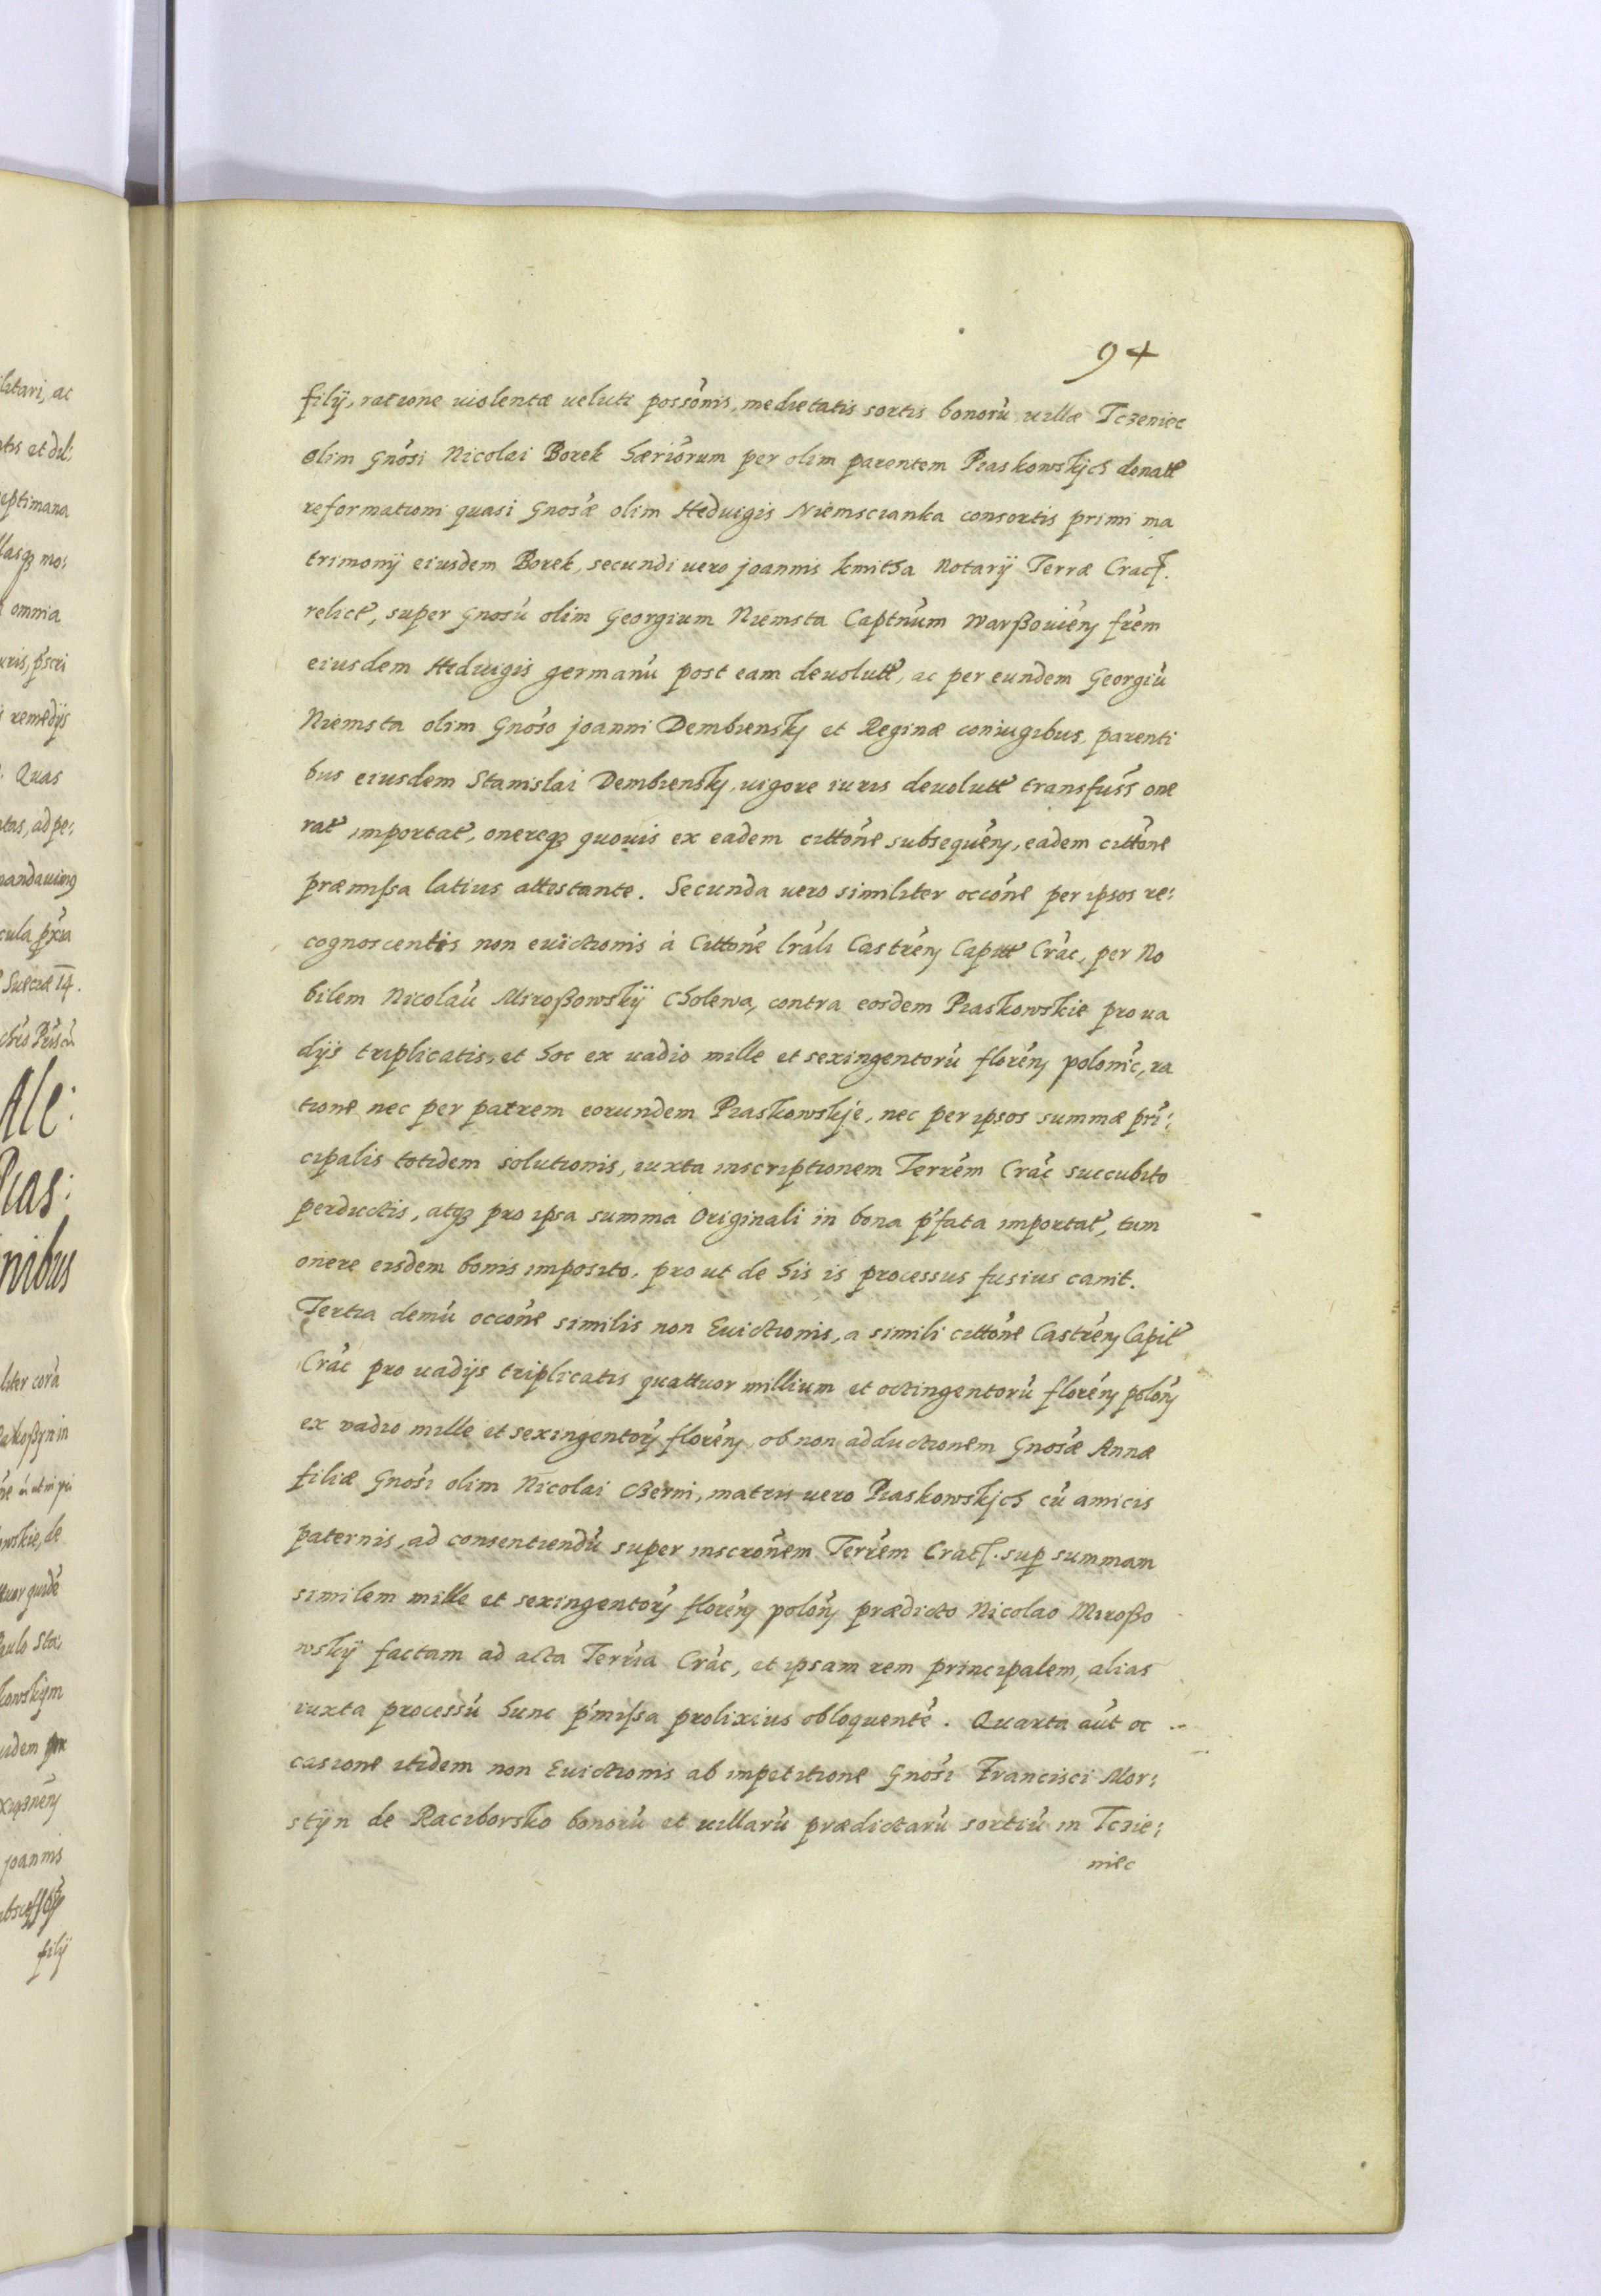 94
filij, ratione uiolentæ ueluti possõnis, medietatis sortis bonorũ uillæ Tczeniec
olim Gnósi Nicolai Borek hæriorum per olim parentem Piaskowskich donatæ
reformationi quasi Gnósæ olim Heduigis Niemscianka consortis primi ma
trimonij eiusdem Borek, secundi uero joannis kmitha Notarij Terræ Crac.
relict, super Gnosũ olim Georgium Niemsta Captnũm Warßouień frém
eiusdem Heduigis germanũ post eam deuolutt, ac per eundem Georgiũ
Niemsta olim Gnóso joanni Dembiensky et Reginæ coniugibus, parenti
bus eiusdem Stanislai Dembiensky, uigore iuris deuolutt transfuss one
rat importat, onereq3 quouis ex eadem cittone subsequeń, eadem cittone
præmissa latius attestante. Secunda uero similiter occóne per ipsos re:
cognoscentes non euictionis á Cittone lrali Castreń Capitt Crac, per No
bilem Nicolaũ Miroßowskÿ Cholewa, contra eosdem Piaskowskie pro ua
dijs triplicatis, et hoc ex uadio mille et sexingentorũ floreń polonic, ra
tione nec per patrem eorundem Piaskowskje, nec per ipsos summæ prí:
cipalis totidem solutionis, iuxta inscriptionem Terrem Crac succubito
perductis, atq3 pro ipsa summa Originali in bona p̃fata importat, tum
onere eisdem bonis imposito, pro ut de his is processus fusius canit.
Tertia demũ occóne similis non Euictionis, a simili cittone Castreń Capit
Crac pro uadijs triplicatis quattuor millium et octingentorũ floreń poloń
ex vadio mille et sexingentorũ floreń, ob non adductionem Gnósæ Annæ
filiæ Gnósi olim Nicolai Cβerni, matris uero Piaskowskich cũ amicis
paternis, ad consentiendũ super inscronem Terrem Crac. sup summam
similem mille et sexingentorũ floreń poloń prædicto Nicolao Miroßo
wskÿ factam ad acta Terria Crac, et ipsam rem principalem, alias
iuxta processũ hunc p̃missa prolixius obloquente. Quarta aũt oc
casione itidem non Euictionis ab inpetitione Gnósi Francisci Mor:
stÿn de Raciborsko bonorũ et uillarũ prædictarũ sortiũ in Tczie:
niec